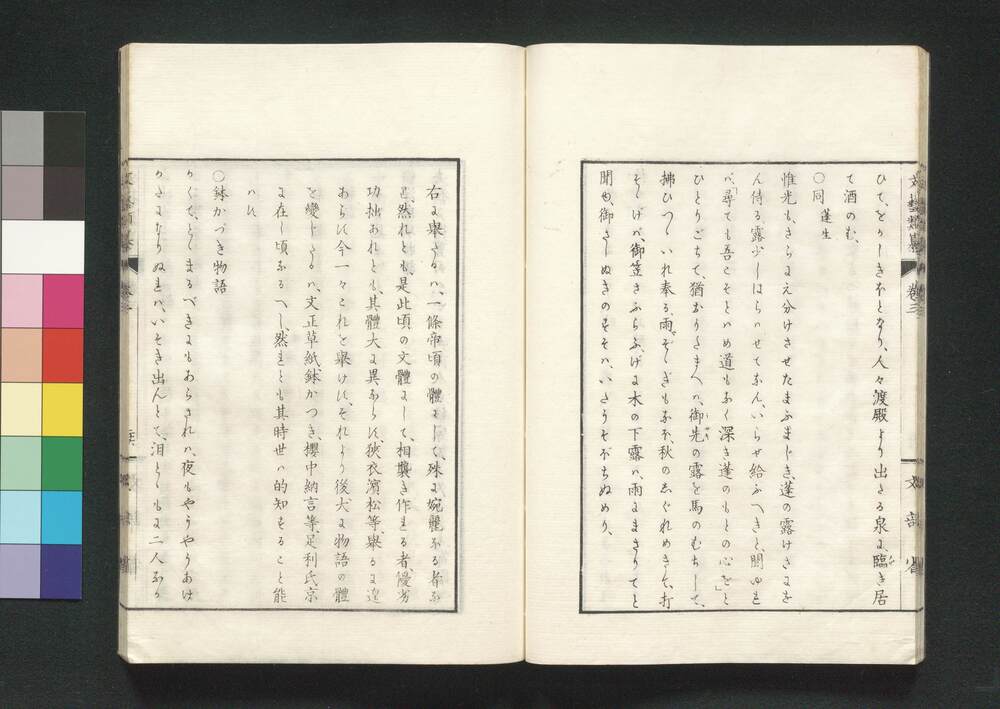 文藝類纂 卷三
文部省
ひて、をかしきほとなり、人々渡殿より出たる泉に臨き居
て酒のむ、
〇同 蓬生
惟光も、さらにえ分けさせたまふまじき、蓬の露けさにな
ん侍る露少しはらはせてなん、いらせ給ふへきと、聞ゆれ
ば、「尋ても吾こそとはめ道もなく深き蓬のもとの心を」と
ひとりごちて、猶おりたまへハ、御先の露を馬のむちして、
拂ひつゝいれ奉る、雨そゝぎもなほ、秋のしぐれめきて、打
そゝげバ、御笠さふらふ、げに木の下露ハ、雨にまさりてと
聞ゆ、御さしぬきのすそハ、いたうそぼちぬめり、
右に擧たるハ、一條帝頃の體にして、殊に婉麗なる者な
り、然れとも、是此頃の文體にして、相襲き作れる者、優劣
功拙あれとも、其體大に異ならす、狹衣濱松等、擧るに遑
あらす、今一々これを擧けす、それより後、犬に物語の體
を變したるハ、文正草紙、鉢かつき、櫻中納言等、足利氏京
に在し頃なるへし、然れとも其時世ハ的知すること能
はす
〇鉢かづき物語
かくて、とゝまるべきにもあらされハ、夜もやうやうあけ
かたになりぬれハ、いそき出んとて、泪とゝもに二人なか
文藝類纂 卷三
文部省